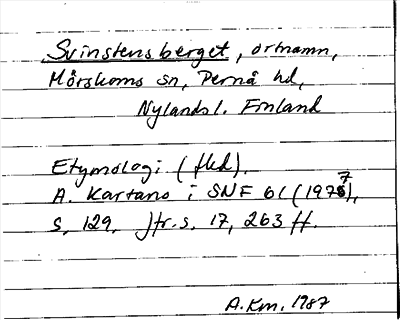 Svinstensberget, ortnamn,
Mörskoms sn, Pernå hd,
Nylands l. Finland
Etymologi (fkd).
A. Kartano i SNF 61 (1977),
s. 129. Jfr. s. 17, 263 ff.
A.Km. 1987